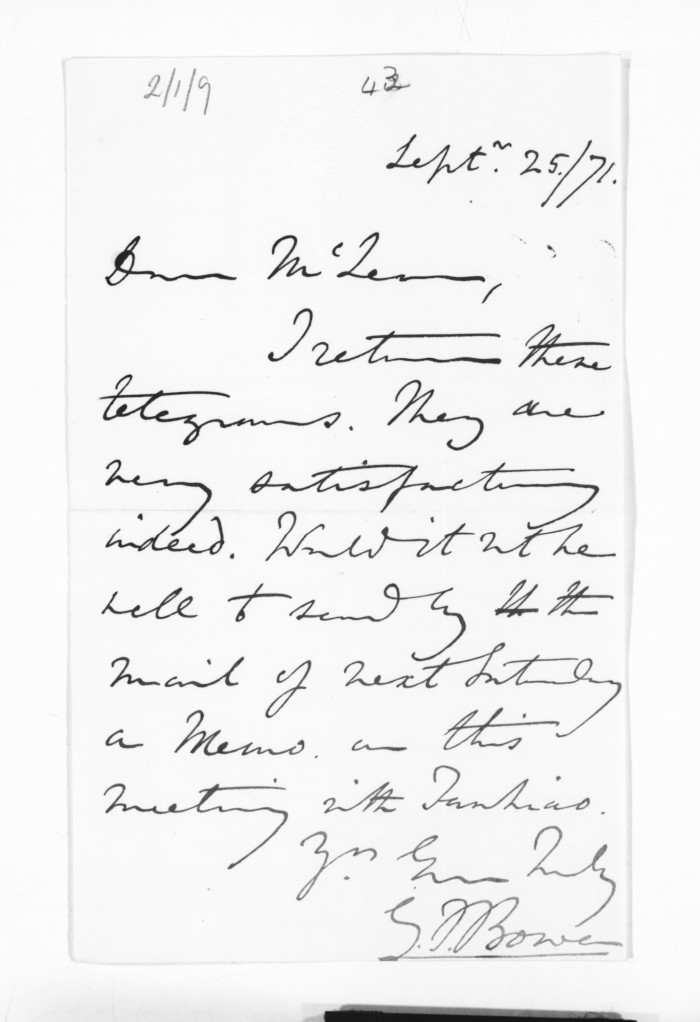 2/1/9
43
Septr. 25/71.
Dear McLean,
I return these
telegrams. They are
very satisfactory
indeed. Would it not be
well to send by th the
mail of next Saturday
a Memo. on this
meeting with Tawhiao.
Yrs Truly
G.F. Bowen